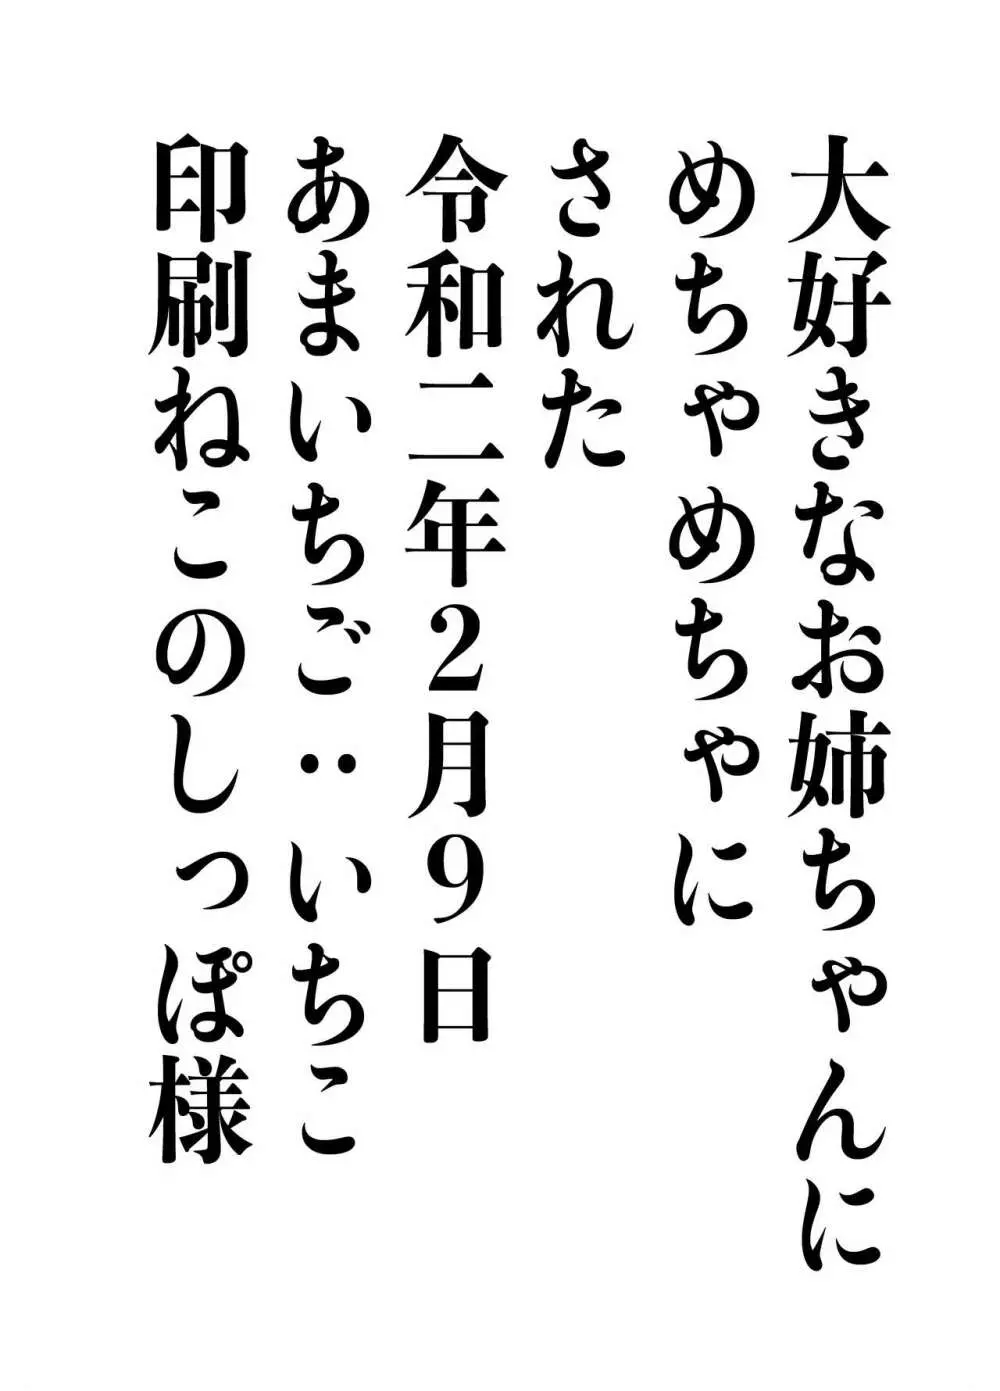 大好きなお姉ちゃんに
めちゃめちゃに
された
令和二年2月9日
あまいちご‥いちこ
印刷ねこのしっぽ様